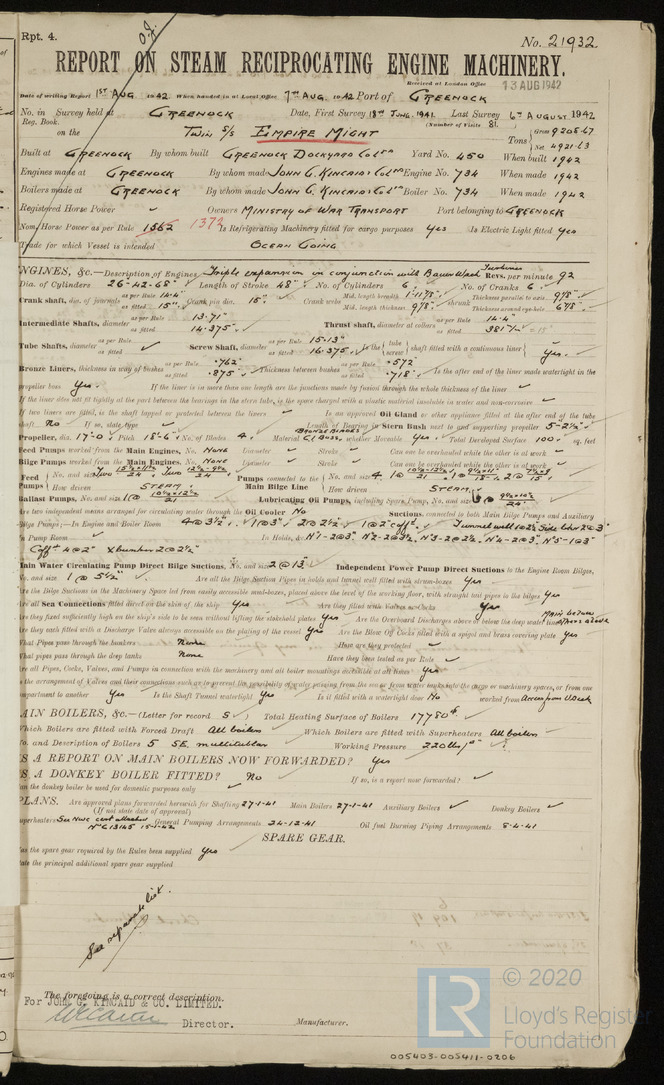 Rpt. 4.
O.K.
No. 21932
REPORT ON STEAM RECIPROCATING ENGINE MACHINERY.
Received at London Office 13 AUG 1942
Date of writing Report 1ST AUG 1942 When handed in at Local Office 7TH AUG. 1942 Port of GREENOCK
No. in Survey held at GREENOCK Date, First Survey 18th JUNE. 1941. Last Survey 6th AUGUST 1942
Reg. Book. (Number of Visits 81.
on the TWIN S/S EMPIRE MIGHT Tons Gross 9205.67 Net 4921.63
Built at GREENOCK By whom built GREENOCK DOCKYARD Co Ltd Yard No. 450 When built 1942
Engines made at GREENOCK By whom made JOHN G. KINCAID & Co Ltd Engine No. 734 When made 1942
Boilers made at GREENOCK By whom made JOHN G. KINCAID & Co Ltd Boiler No. 734 When made 1942
Registered Horse Power Owners MINISTRY OF WAR TRANSPORT Port belonging to GREENOCK
Nom. Horse Power as per Rule 1562 1372 Is Refrigerating Machinery fitted for cargo purposes Yes Is Electric Light fitted Yes
Trade for which Vessel is intended OCEAN GOING
NGINES, &c.—Description of Engines Triple expansion in conjunction with Bauer Wach Turbines Revs. per minute 92
Dia. of Cylinders 26-42-68" Length of Stroke 48" No. of Cylinders 6 No. of Cranks 6
Crank shaft, dia. of journals as per Rule 14.4" as fitted 15" Crank pin dia. 15" Crank webs Mid. length breadth 1'-11⅞" Mid. length thickness 9⅜" shrunk Thickness parallel to axis 9⅜" Thickness around eye-hole 6⅞"
Intermediate Shafts, diameter as per Rule 13.71" as fitted 14.375" Thrust shaft, diameter at collars as per Rule 14.4" as fitted
Tube Shafts, diameter as per Rule as fitted Screw Shaft, diameter as per Rule 15.13" as fitted 16.375" Is the tube screw shaft fitted with a continuous liner Yes.
Bronze Liners, thickness in way of bushes as per Rule .762" as fitted .875" Thickness between bushes as per Rule .572" as fitted .718" Is the after end of the liner made watertight in the
propeller boss Yes. If the liner is in more than one length are the junctions made by fusion through the whole thickness of the liner
If the liner does not fit tightly at the part between the bearings in the stern tube, is the space charged with a plastic material insoluble in water and non-corrosive
If two liners are fitted, is the shaft lapped or protected between the liners Is an approved Oil Gland or other appliance fitted at the after end of the tube
shaft No If so, state type Length of Bearing in Stern Bush next to and supporting propeller 5-2½"
Propeller, dia. 17-0" Pitch 18-6" No. of Blades 4 Material BRONZE BLADES C.I. BOSS whether Moveable Yes. Total Developed Surface 100 sq. feet
Feed Pumps worked from the Main Engines, No. NONE Diameter Stroke Can one be overhauled while the other is at work
Bilge Pumps worked from the Main Engines, No. NONE Diameter Stroke Can one be overhauled while the other is at work
Feed Pumps No. and size How driven STEAM Pumps connected to the Main Bilge Line No. and size How driven STEAM
Ballast Pumps, No. and size 1 @ 10½"×12½" 21 Lubricating Oil Pumps, including Spare Pump, No. and size
Are two independent means arranged for circulating water through the Oil Cooler No Suctions, connected to both Main Bilge Pumps and Auxiliary
Bilge Pumps;—In Engine and Boiler Room 4 @ 3½" 1 @ 3" 2 @ 2½" 1 @ 2" Coffd. Tunnel well
In Pump Room In Holds, &c No 1-2@3" No 2-2@3½" No 3-2@2½" No 4-2@3" No 5-1@3"
Coffd 4 @ 2" X bunker 2 @ 2½"
Main Water Circulating Pump Direct Bilge Suctions, No. and size 2 @ 13" Independent Power Pump Direct Suctions to the Engine Room Bilges,
No. and size 1 @ 5½" Are all the Bilge Suction Pipes in holds and tunnel well fitted with strum-boxes Yes
Are the Bilge Suctions in the Machinery Space led from easily accessible mud-boxes, placed above the level of the working floor, with straight tail pipes to the bilges Yes
Are all Sea Connections fitted direct on the skin of the ship Yes Are they fitted with Valves or Cocks Yes
Are they fixed sufficiently high on the ship's side to be seen without lifting the stokehold plates Yes Are the Overboard Discharges above or below the deep water line Main below Others above
Are they each fitted with a Discharge Valve always accessible on the plating of the vessel Yes Are the Blow Off Cocks fitted with a spigot and brass covering plate Yes
What Pipes pass through the bunkers None How are they protected
What pipes pass through the deep tanks None Have they been tested as per Rule
Are all Pipes, Cocks, Valves, and Pumps in connection with the machinery and all boiler mountings accessible at all times Yes
Is the arrangement of Valves and their connections such as to prevent the possibility of water passing from the sea or from water tanks into the cargo or machinery spaces, or from one
compartment to another Yes Is the Shaft Tunnel watertight Yes Is it fitted with a watertight door No worked from Access from U deck
AIN BOILERS, &c.—(Letter for record S) Total Heating Surface of Boilers 17780 ft
Which Boilers are fitted with Forced Draft All boilers Which Boilers are fitted with Superheaters All boilers
No. and Description of Boilers 5 SE. multitubular Working Pressure 220 lbs/□"
IS A REPORT ON MAIN BOILERS NOW FORWARDED? Yes
IS A DONKEY BOILER FITTED? No If so, is a report now forwarded?
Can the donkey boiler be used for domestic purposes only
PLANS. Are approved plans forwarded herewith for Shafting 27-1-41 Main Boilers 27-1-41 Auxiliary Boilers Donkey Boilers
(If not state date of approval)
Superheaters See Nwc cert attached No C13145 15-1-42 General Pumping Arrangements 24-12-41 Oil fuel Burning Piping Arrangements 8-4-41
SPARE GEAR.
Has the spare gear required by the Rules been supplied Yes
State the principal additional spare gear supplied
See separate list.
The foregoing is a correct description.
For JOHN G. KINCAID & CO. LIMITED.
Director. Manufacturer.
LR
© 2020
Lloyd's Register
Foundation
005403-005411-0206